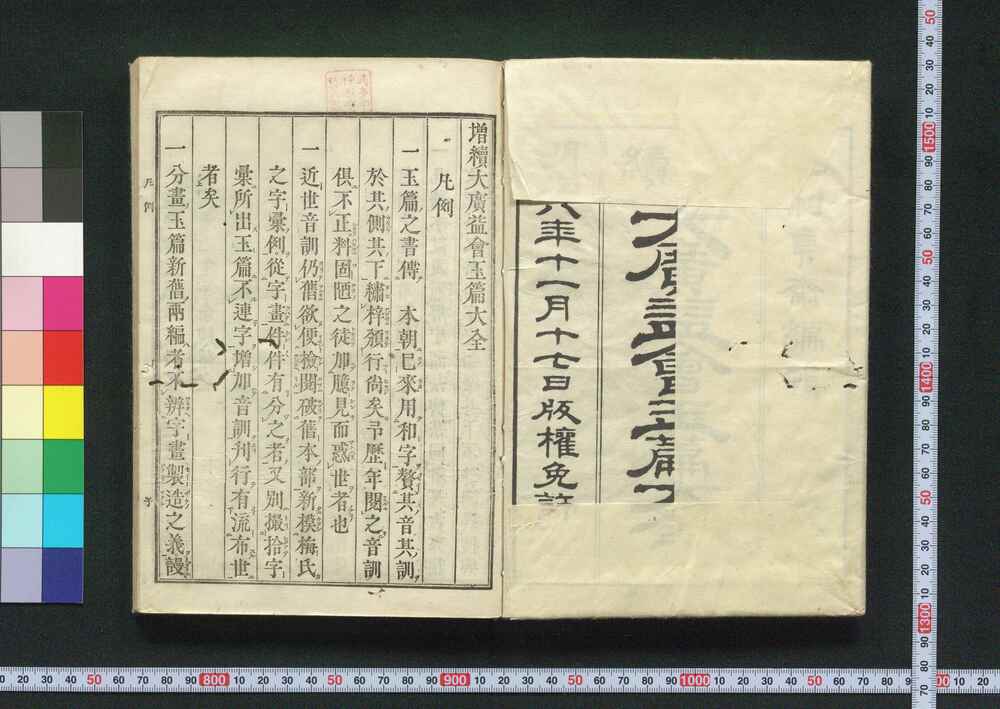 八年十一月十七日版權免許
增續大廣益會玉篇大全
凡例
一玉篇之書傳 本朝已來用和字贅其音其訓
於其側其下繡梓頒行尚矣予歷年閱之音訓
俱不正料固陋之徒加臆見而惑世者也
一近世音訓仍舊欲便撿閱破舊本部新模梅氏
之字彙例從字畫件件有分之者又別撮拾字
彙所出玉篇不連字增加音訓刋行有流布世
者矣
一分畫玉篇新舊兩編者不辨字畫製造之義謾
凡例